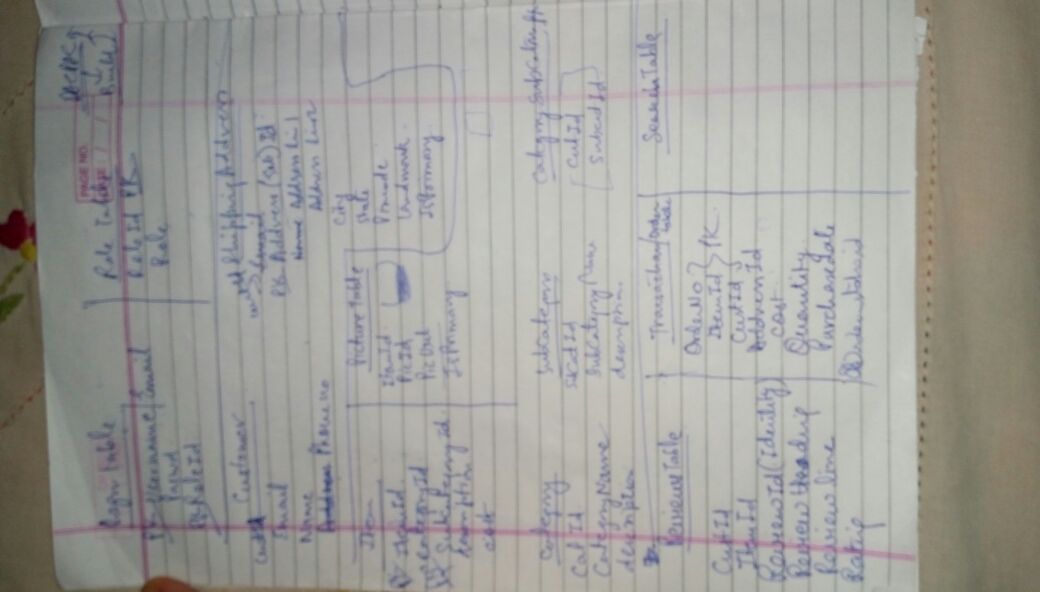 PAGE NO.
DACPAC
Build
Login table
PK Username/Email
Passwd
RoleId
Role Table
RoleId PK
Role
Customer
CustId
Email
Name
Phone no
Shipping Address
CustId
Email
Address (Sub) Id
Name Address Line 1
Address Line 2
City
State
Pincode
Landmark
IsPrimary
Item
ItemId
CategoryId
SubCategoryId
description
cost
Picture Table
ItemId
PicId
IsPrimary
Category
Cat Id
CategoryName
description
SubCategory
SubCatId
SubCategory Name
description
CatId
SubcatId
Reviews Table
CustId
ItemId
ReviewId (Identity)
Review Heading
Review line
Rating
Transaction/Order table
OrderNo
ItemId PK
CustId
AddressId
cost
Quantity
Purchasedate
Search Table